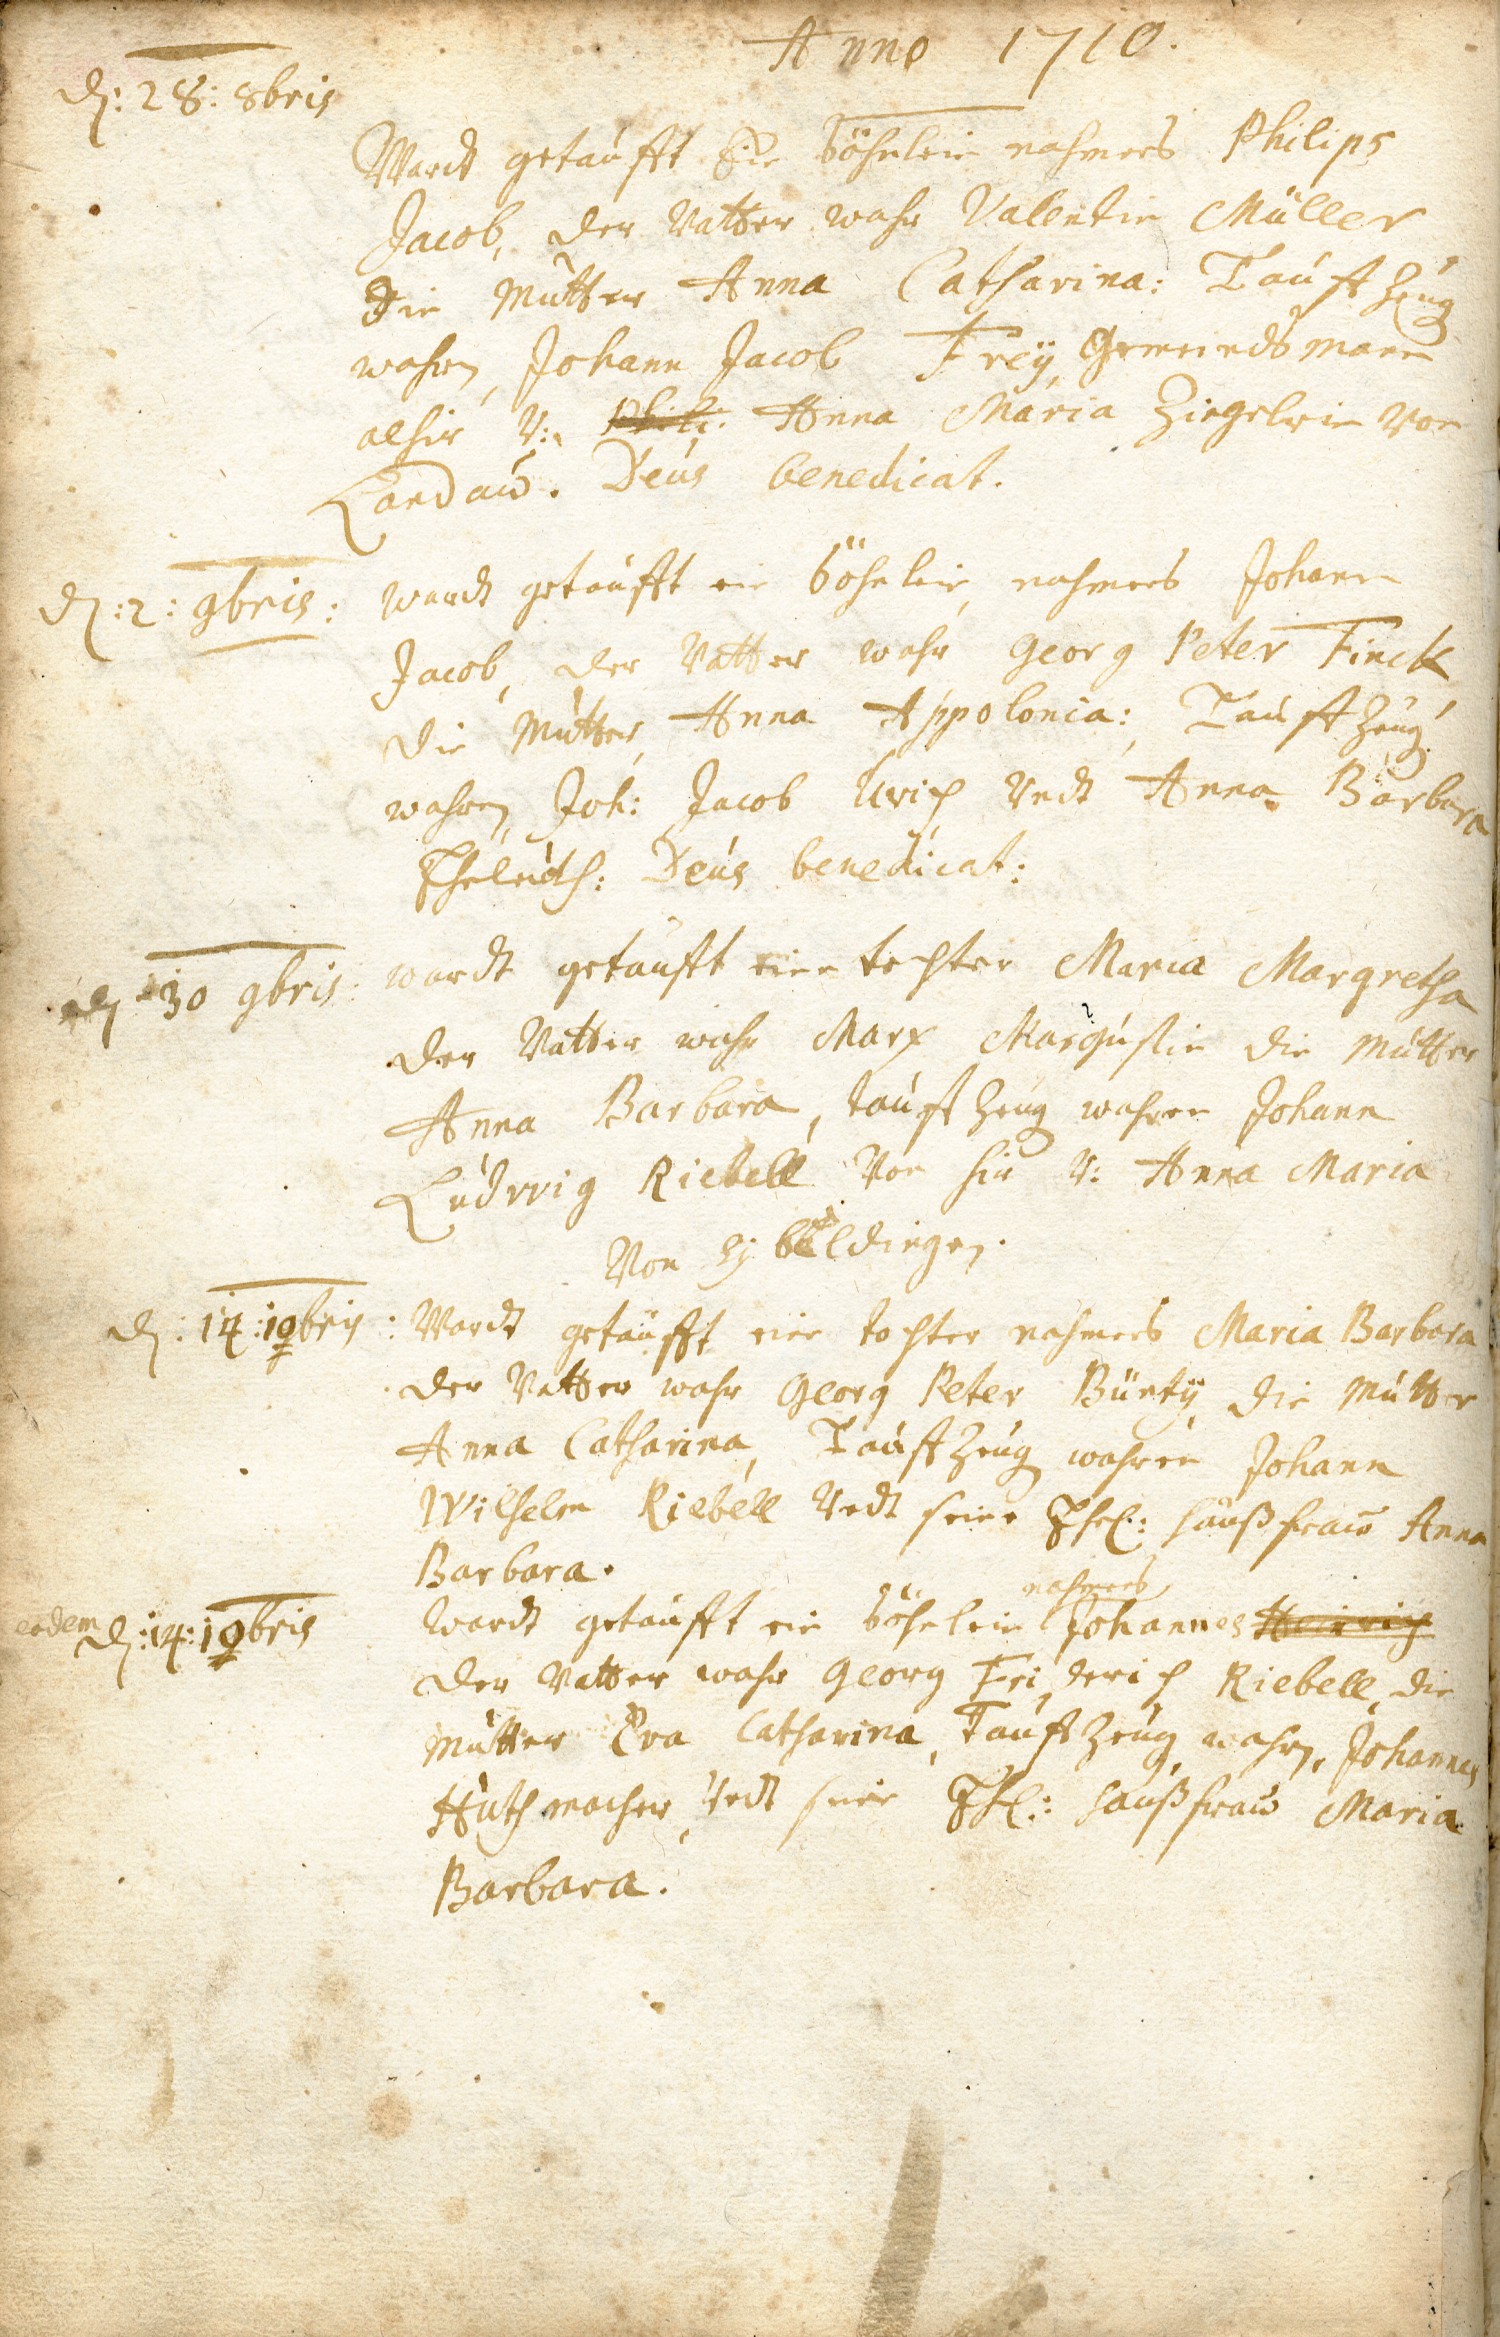 Anno 1710.
d: 28: 8bris
Wardt getaufft Ein Söhnlein nahmens Philips
Jacob, der Vatter wahr Vallentin Müller
Die Mutter Anna Catharina: Tauff Zeug
wahren, Johann Jacob Frey, Gemeindsmann
alhir V: Phili: Anna Maria Ziegelerin Von
Landaw. Deus benedicat.
d: 2: 9bris: wardt getaufft ein Söhnlein, nahmens Johann
Jacob, der Vatter wahr Georg Peter Finck
die Mutter, Anna Appolonia: Tauff Zeug
wahren, Joh: Jacob Urich Undt Anna Barbara
Eheleuth: Deus benedicat:
d 30 9bris: wardt getaufft eine tochter Maria Margretha
der Vatter wahr Marx die Mutter
Anna Barbara, tauff Zeug wahren Johann
Ludwig Riebell Von hir V: Anna Maria
Von
d: 14: 10bris: Wardt getaufft eine tochter nahmens Maria Barbara
der Vatter wahr Georg Peter Bünty, die Mutter
Anna Catharina, Tauff Zeug wahren Johann
Wilhelm Riebell Undt seine Ehel: haußfraw Anna
Barbara.
eodem d: 14: 10bris wardt getaufft ein Söhnlein nahmens Johannes Heinrich
der Vatter wahr Georg Friderich Riebell, die
Mutter Eva Catharina, Tauff Zeug wahren, Johannes
Huthmacher, Undt seine Ehl: haußfraw Maria
Barbara.